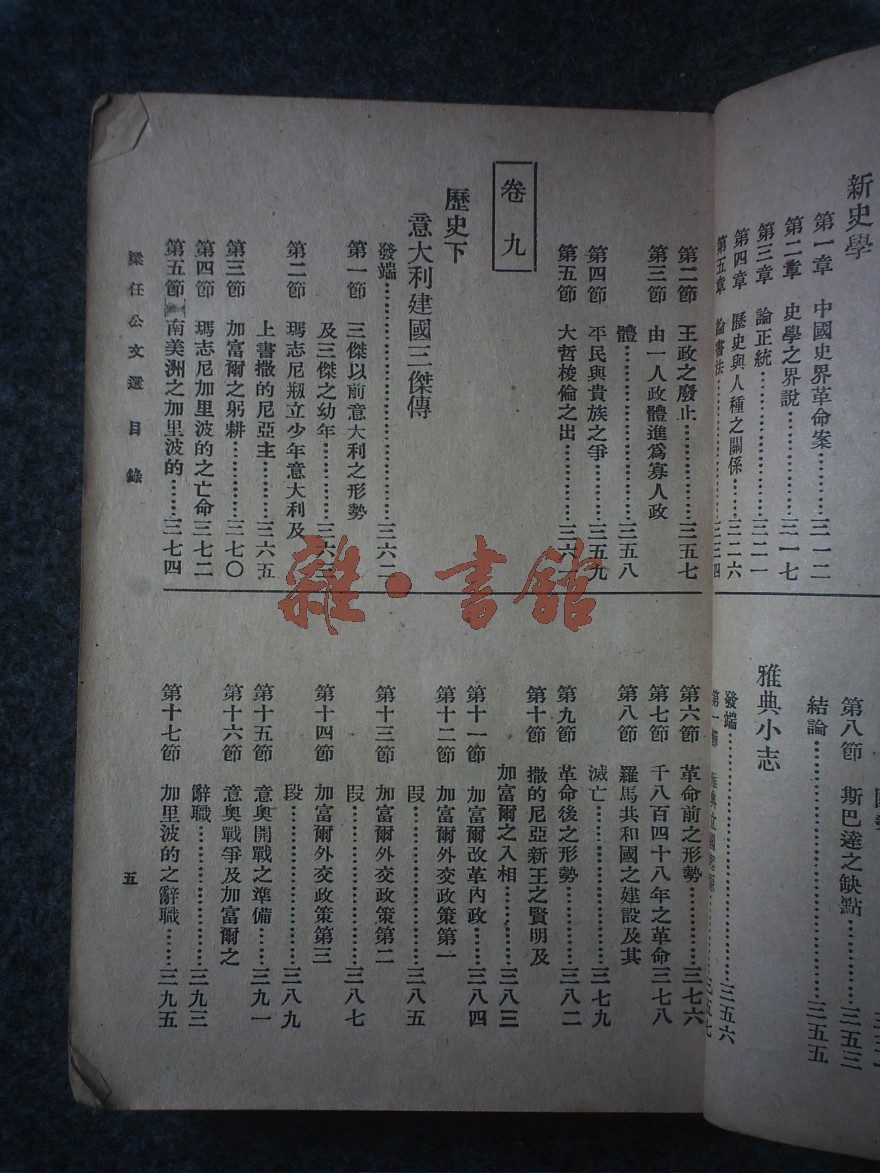 新史學
第一章 中國史界革命案………三一二
第二章 史學之界說………三一七
第三章 論正統………三二一
第四章 歷史與人種之關係……三二六
第五章 論書法………三三四
第八節 斯巴達之缺點………三五三
結論………三五五
雅典小志
發端………三五六
第二節 王政之廢止………三五七
第三節 由一人政體進爲寡人政
體………三五八
第四節 平民與貴族之爭………三五九
第五節 大哲梭倫之出………三六
卷九
歷史下
意大利建國三傑傳
發端………三六二
第一節 三傑以前意大利之形勢
及三傑之幼年………三六三
第二節 瑪志尼剏立少年意大利及
上書撒的尼亞主………三六五
第三節 加富爾之躬耕………三七〇
第四節 瑪志尼加里波的之亡命 三七二
第五節 南美洲之加里波的……三七四
第六節 革命前之形勢………三七六
第七節 千八百四十八年之革命 三七八
第八節 羅馬共和國之建設及其
滅亡………三七九
第九節 革命後之形勢………三八二
第十節 撒的尼亞新王之賢明及
加富爾之入相………三八三
第十一節 加富爾改革內政……三八四
第十二節 加富爾外交政策第一
段………三八五
第十三節 加富爾外交政策第二
段………三八七
第十四節 加富爾外交政策第三
段………三八九
第十五節 意奧開戰之準備……三九一
第十六節 意奧戰爭及加富爾之
辭職………三九三
第十七節 加里波的之辭職……三九五
梁任公文選目錄
五
雜·書館